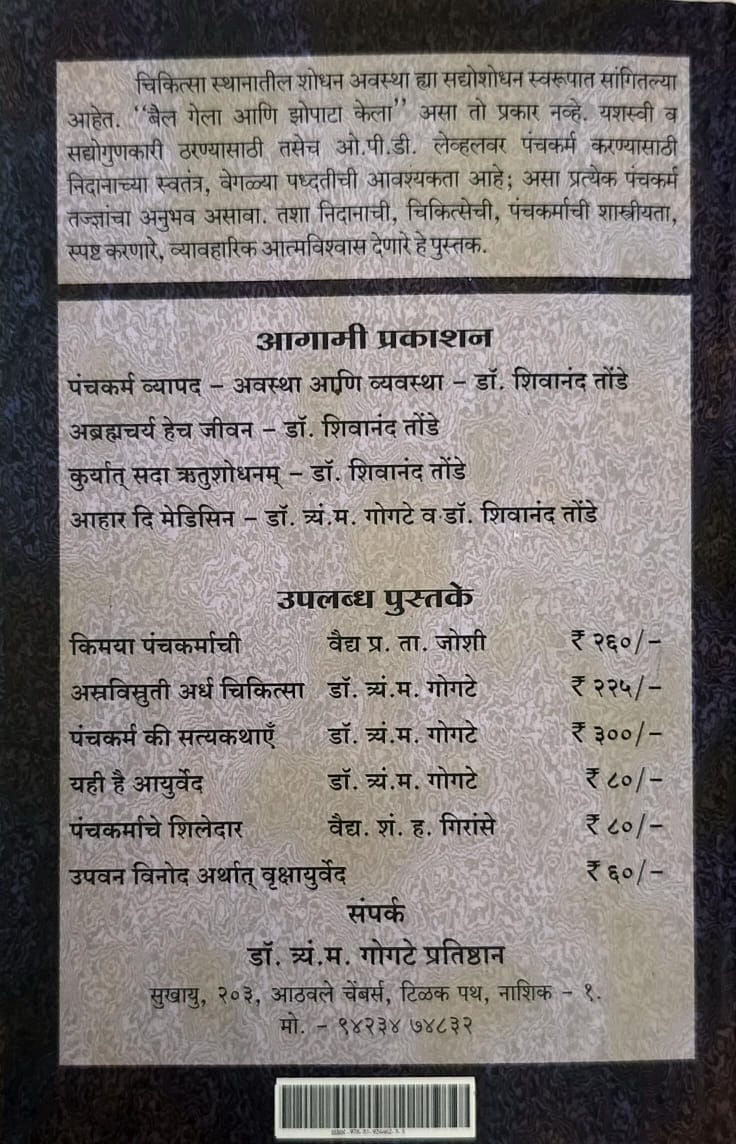 चिकित्सा स्थानातील शोधन अवस्था ह्या सद्योशोधन स्वरूपात सांगितल्या
आहेत. ‘‘बैल गेला आणि झोपाटा केला’’ असा तो प्रकार नव्हे. यशस्वी व
सद्योगुणकारी ठरण्यासाठी तसेच ओ.पी.डी. लेव्हलवर पंचकर्म करण्यासाठी
निदानाच्या स्वतंत्र, वेगळ्या पध्दतीची आवश्यकता आहे; असा प्रत्येक पंचकर्म
तज्ज्ञांचा अनुभव असावा. तशा निदानाची, चिकित्सेची, पंचकर्माची शास्त्रीयता,
स्पष्ट करणारे, व्यावहारिक आत्मविश्वास देणारे हे पुस्तक.
आगामी प्रकाशन
पंचकर्म व्यापद – अवस्था आणि व्यवस्था – डॉ. शिवानंद तोंडे
अब्रह्मचर्य हेच जीवन – डॉ. शिवानंद तोंडे
कुर्यात् सदा ऋतुशोधनम् – डॉ. शिवानंद तोंडे
आहार दि मेडिसिन – डॉ. त्र्यं.म. गोगटे व डॉ. शिवानंद तोंडे
उपलब्ध पुस्तके
किमया पंचकर्माची वैद्य प्र. ता. जोशी ₹ २६०/–
अस्रविस्रुती अर्ध चिकित्सा डॉ. त्र्यं.म. गोगटे ₹ २२५/–
पंचकर्म की सत्यकथाएँ डॉ. त्र्यं.म. गोगटे ₹ ३००/–
यही है आयुर्वेद डॉ. त्र्यं.म. गोगटे ₹ ८०/–
पंचकर्माचे शिलेदार वैद्य. शं. ह. गिरांसे ₹ ८०/–
उपवन विनोद अर्थात् वृक्षायुर्वेद ₹ ६०/–
संपर्क
डॉ. त्र्यं.म. गोगटे प्रतिष्ठान
सुखायु, २०३, आठवले चेंबर्स, टिळक पथ, नाशिक – १.
मो. – ९४२३४ ७४८३२